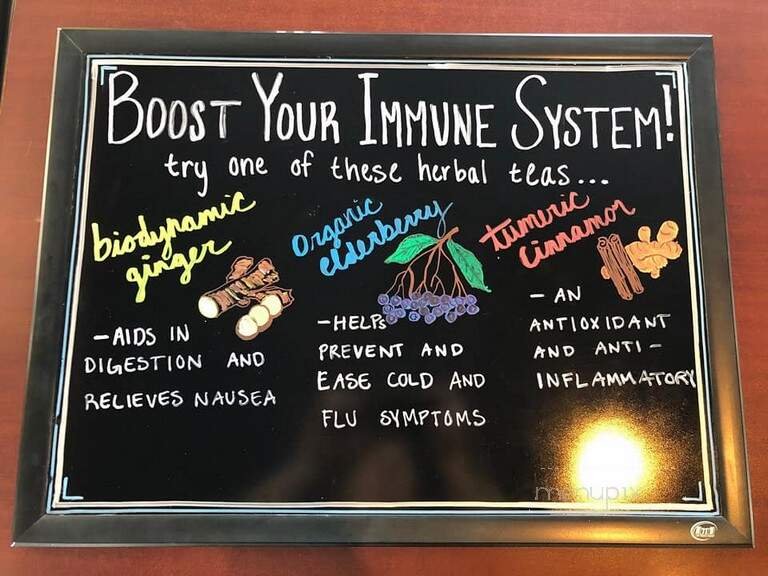 BOOST YOUR IMMUNE SYSTEM!
try one of these herbal teas...
biodynamic
ginger
-AIDS IN
DIGESTION AND
RELIEVES NAUSEA
Organic
elderberry
-HELPS
PREVENT AND
EASE COLD AND
FLU SYMPTOMS
tumeric
Cinnamon
- AN
ANTIOXIDANT
AND ANTI-
INFLAMMATORY